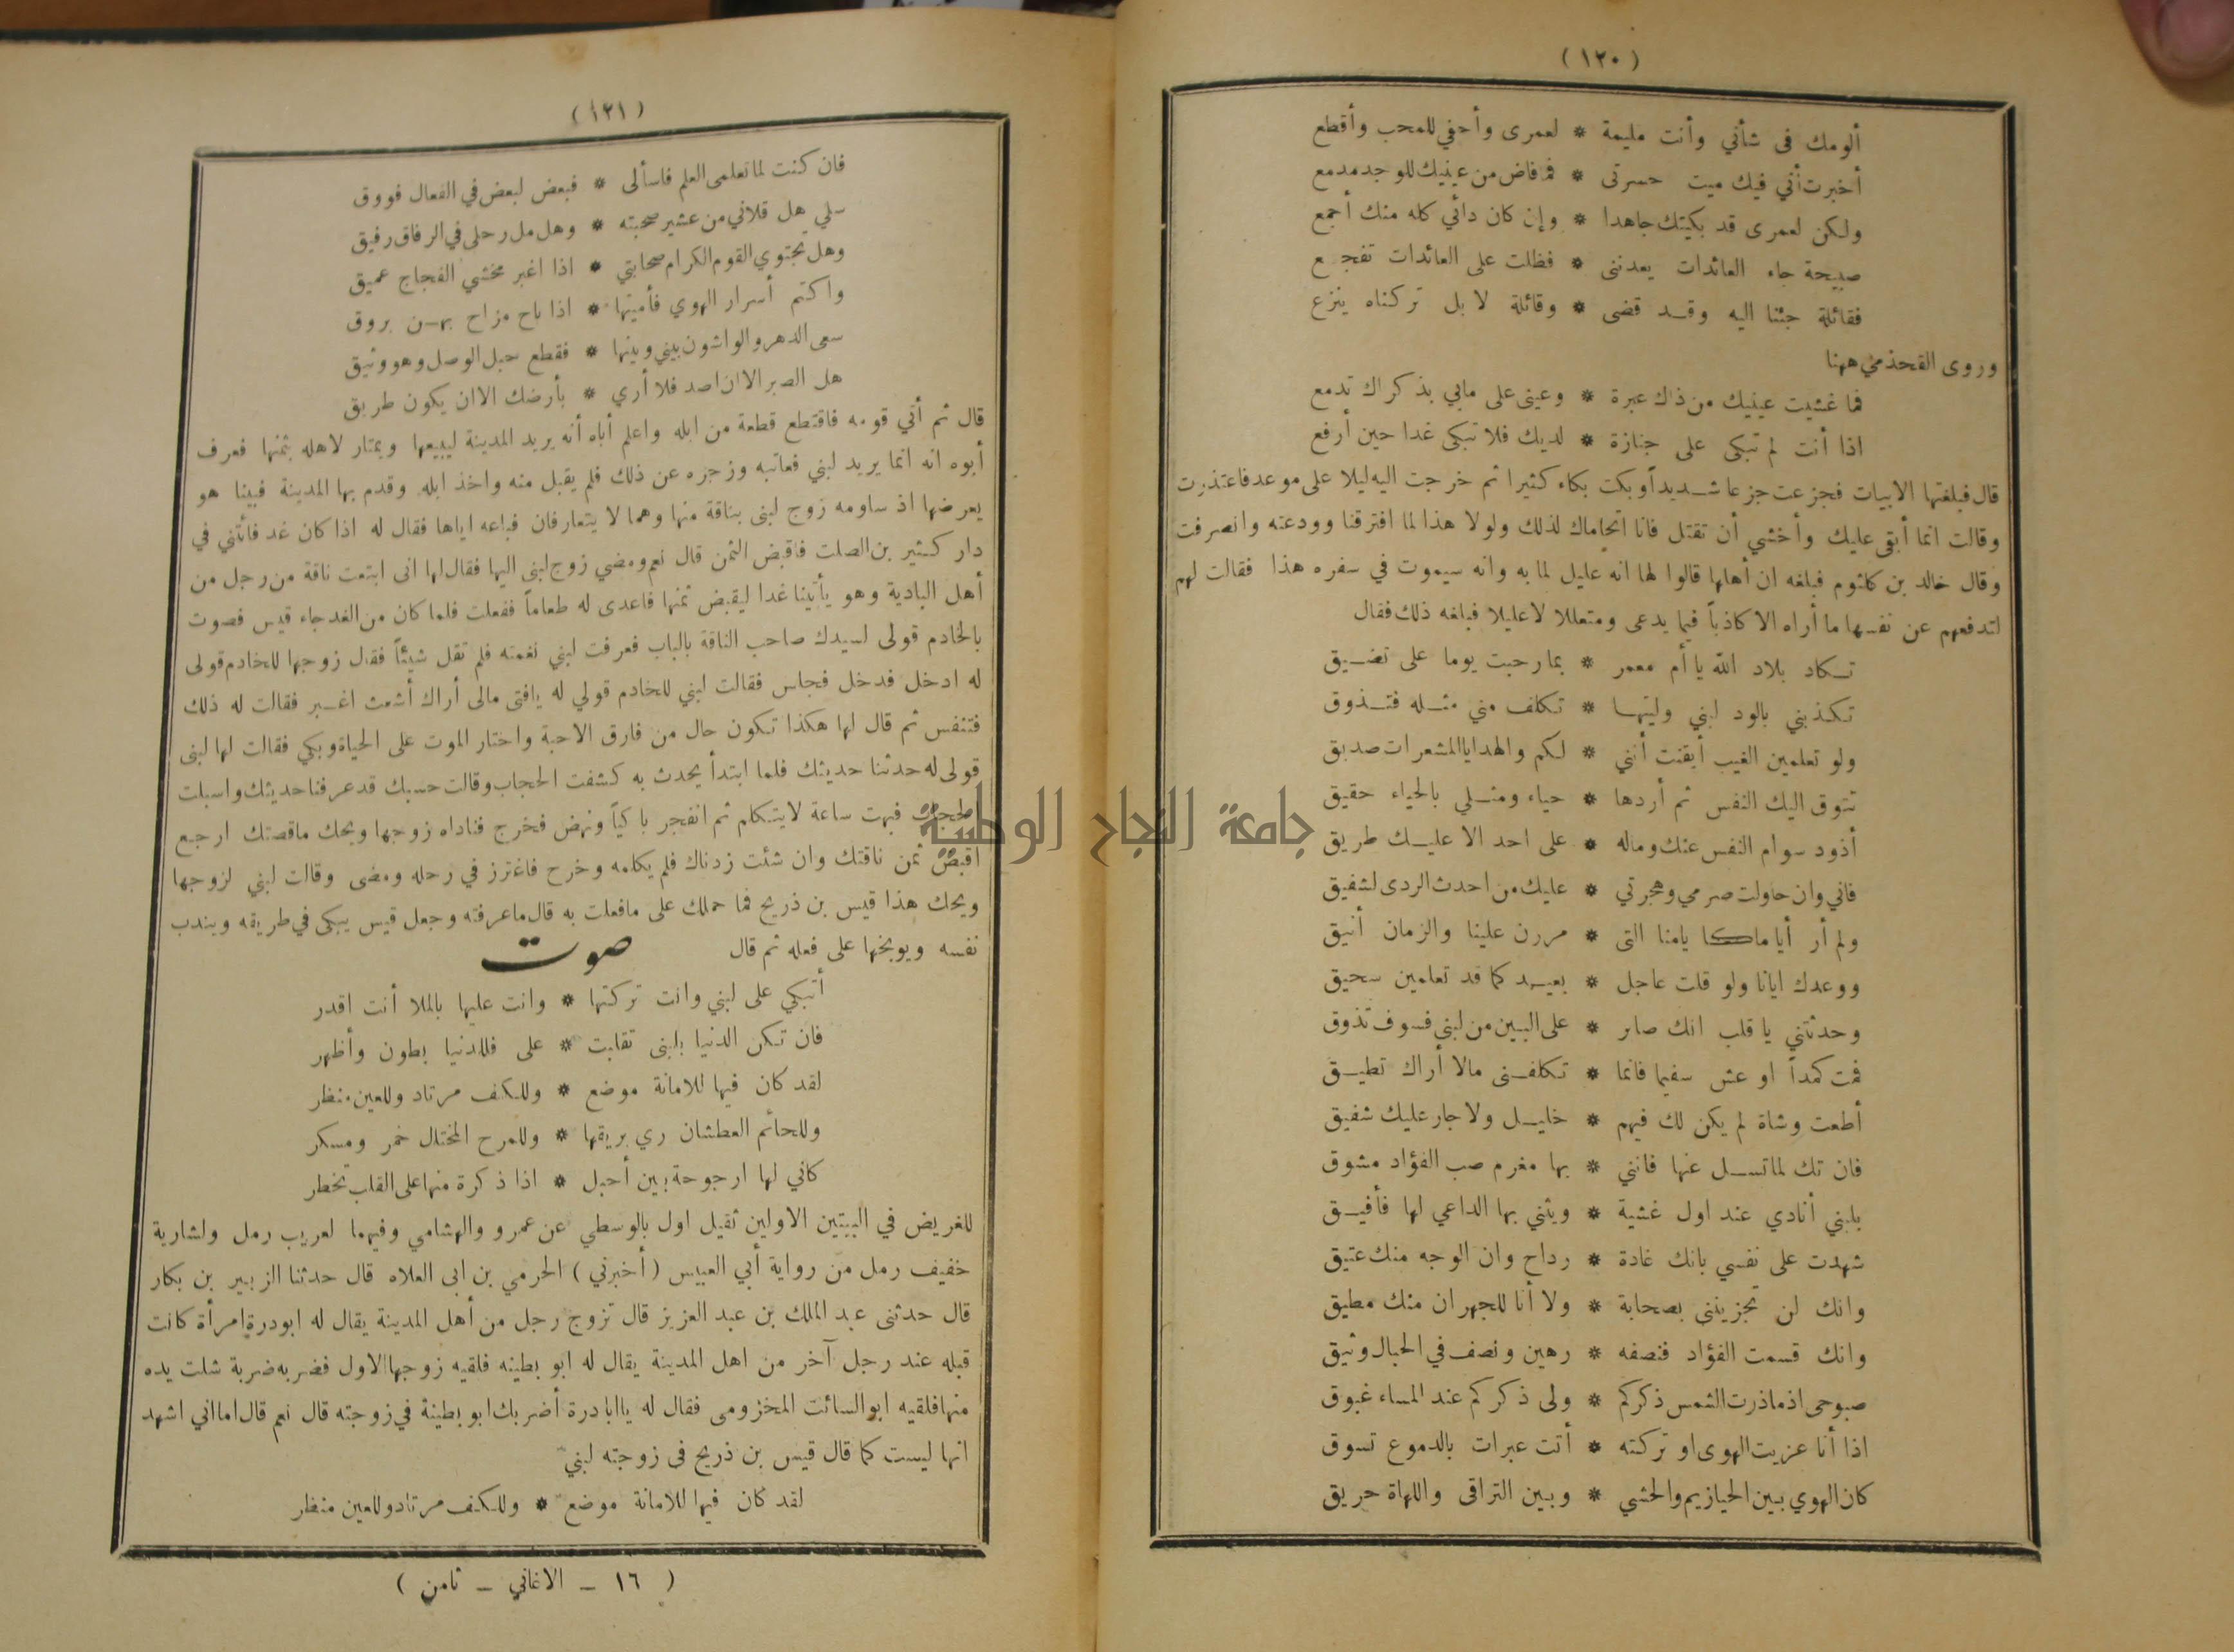 (١٢٠)
ألومك فى شأني وأنت مليمة * لعمرى وأجفي للمحب وأقطع
أخبرت أني فيك ميت حسرتى * فما فاض من عينيك للوجد مدمع
ولكن لعمرى قد بكيتك جاهدا * وإن كان دائي كله منك أجمع
صبيحة جاء العائدات يعدننى * فظلت على العائدات تفجع
فقائلة جئنا اليه وقد قضى * وقائلة لا بل تركناه ينزع
وروى القحذمي ههنا
فما غشيت عينيك من ذاك عبرة * وعينى على مابي بذكراك تدمع
اذا أنت لم تبكى على جنازة * لديك فلا تبكى غدا حين أرفع
قال فبلغتها الابيات فجزعت جزعا شديداً وبكت بكاء كثيرا ثم خرجت اليه ليلا على موعد فاعتذرت
وقالت انما أبقى عليك وأخشي أن تقتل فانا اتحاماك لذلك ولولا هذا لما افترقنا وودعته وانصرفت
وقال خالد بن كلثوم فبلغه ان أهلها قالوا لها انه عليل لما به وانه سيموت في سفره هذا فقالت لهم
لتدفعهم عن نفسها ما أراه الا كاذباً فيما يدعى ومتعللا لا عليلا فبلغه ذلك فقال
تكاد بلاد الله يا أم معمر * بما رحبت يوما على تضيق
تكذبني بالود لبني وليتها * تكلف مني مثله فتذوق
ولو تعلمين الغيب أيقنت أنني * لكم والهدايا المشعرات صديق
تتوق اليك النفس ثم أردها * حياء ومثلي بالحياء حقيق
أذود سوام النفس عنك وماله * على احد الا عليك طريق
فاني وان حاولت صرمي وهجرتي * عليك من احدث الردى لشفيق
ولم أر أياما كأيامنا التى * مررن علينا والزمان أنيق
ووعدك ايانا ولو قلت عاجل * بعيد كما قد تعلمين سحيق
وحدثتني يا قلب انك صابر * على البين من لبنى فسوف تذوق
فمت كمداً او عش سقيما فانما * تكلفنى مالا أراك تطيق
أطعت وشاة لم يكن لك فيهم * خليل ولا جار عليك شفيق
فان تك لما تسل عنها فانني * بها مغرم صب الفؤاد مشوق
بلبني أنادي عند اول غشية * ويثني بها الداعي لها فأفيق
شهدت على نفسي بانك غادة * رداح وان الوجه منك عتيق
وانك لن تجزينني بصحابة * ولا أنا للهجران منك مطيق
وانك قسمت الفؤاد فنصفه * رهين ونصف في الحبال وثيق
صبوحى اذ ماذرت الشمس ذكركم * ولى ذكركم عند المساء غبوق
اذا أنا عزيت الهوى او تركته * أتت عبرات بالدموع تسوق
كان الهوي بين الحيازيم والحشي * وبين التراقى واللهاة حريق
(١٢١)
فان كنت لما تعلمى العلم فاسألى * فبعض لبعض في الفعال فووق
سلي هل قلاني من عشير صحبته * وهل مل رحلى في الرفاق رفيق
وهل يجتوي القوم الكرام صحابتي * اذا اغبر مخشي الفجاج عميق
واكتم أسرار الهوي فأميتها * اذا باح مزاح بهن بروق
سعى الدهر والواشون بيني وبينها * فقطع حبل الوصل وهو وثيق
هل الصبر الا ان اصد فلا أري * بأرضك الا ان يكون طريق
قال ثم أتي قومه فاقتطع قطعة من ابله واعلم أباه أنه يريد المدينة ليبيعها ويمتار لاهله بثمنها فعرف
أبوه انه انما يريد لبني فعاتبه وزجره عن ذلك فلم يقبل منه واخذ ابله وقدم بها المدينة فبينا هو
يعرضها اذ ساومه زوج لبنى بناقة منها وهما لا يتعارفان فباعه اياها فقال له اذا كان غد فأتني في
دار كثير بن الصلت فاقبض الثمن قال نعم ومضي زوج لبنى اليها فقال لها انى ابتعت ناقة من رجل من
أهل البادية وهو يأتينا غدا ليقبض ثمنها فاعدى له طعاماً ففعلت فلما كان من الغد جاء قيس فصوت
بالخادم قولى لسيدك صاحب الناقة بالباب فعرفت لبني نغمته فلم تقل شيئاً فقال زوجها للخادم قولى
له ادخل فدخل فجلس فقالت لبني للخادم قولي له يافتى مالى أراك أشعث اغبر فقالت له ذلك
فتنفس ثم قال لها هكذا تكون حال من فارق الاحبة واختار الموت على الحياة وبكي فقالت لها لبنى
قولى له حدثنا حديثك فلما ابتدأ يحدث به كشفت الحجاب وقالت حسبك قد عرفنا حديثك واسبلت
الحجاب فبهت ساعة لا يتكلم ثم انفجر باكياً ونهض فخرج فناداه زوجها ويحك ماقصتك ارجع
اقبض ثمن ناقتك وان شئت زدناك فلم يكلمه وخرج فاغترز في رحله ومضى وقالت لبني لزوجها
ويحك هذا قيس بن ذريح فما حملك على مافعلت به قال ماعرفته وجعل قيس يبكى في طريقه ويندب
نفسه ويوبخها على فعله ثم قال صوت
أتبكي على لبني وانت تركتها * وانت عليها بالملا أنت اقدر
فان تكن الدنيا بلبنى تقلبت * على فللدنيا بطون وأظهر
لقد كان فيها للامانة موضع * وللكف مرتاد وللعين منظر
وللحائم العطشان ري بريقها * وللمرح المختال خمر ومسكر
كاني لها ارجوحة بين أحبل * اذا ذكرة منها على القلب تخطر
للغريض في البيتين الاولين ثقيل اول بالوسطي عن عمرو والهشامي وفيهما لعريب رمل ولشارية
خفيف رمل من رواية أبي العبيس (أخبرني) الحرمي بن ابى العلاء قال حدثنا الزبير بن بكار
قال حدثنى عبد الملك بن عبد العزيز قال تزوج رجل من أهل المدينة يقال له ابو درة امرأة كانت
قبله عند رجل آخر من اهل المدينة يقال له ابو بطينه فلقيه زوجها الاول فضربه ضربة شلت يده
منها فلقيه ابو السائت المخزومى فقال له يا ابا درة أضربك ابو بطينة في زوجته قال نعم قال اما اني اشهد
انها ليست كما قال قيس بن ذريح فى زوجته لبني
لقد كان فيها للامانة موضع * وللكف مرتاد وللعين منظر
( ١٦ ـ الاغاني ـ ثامن )
جامعة النجاح الوطنية